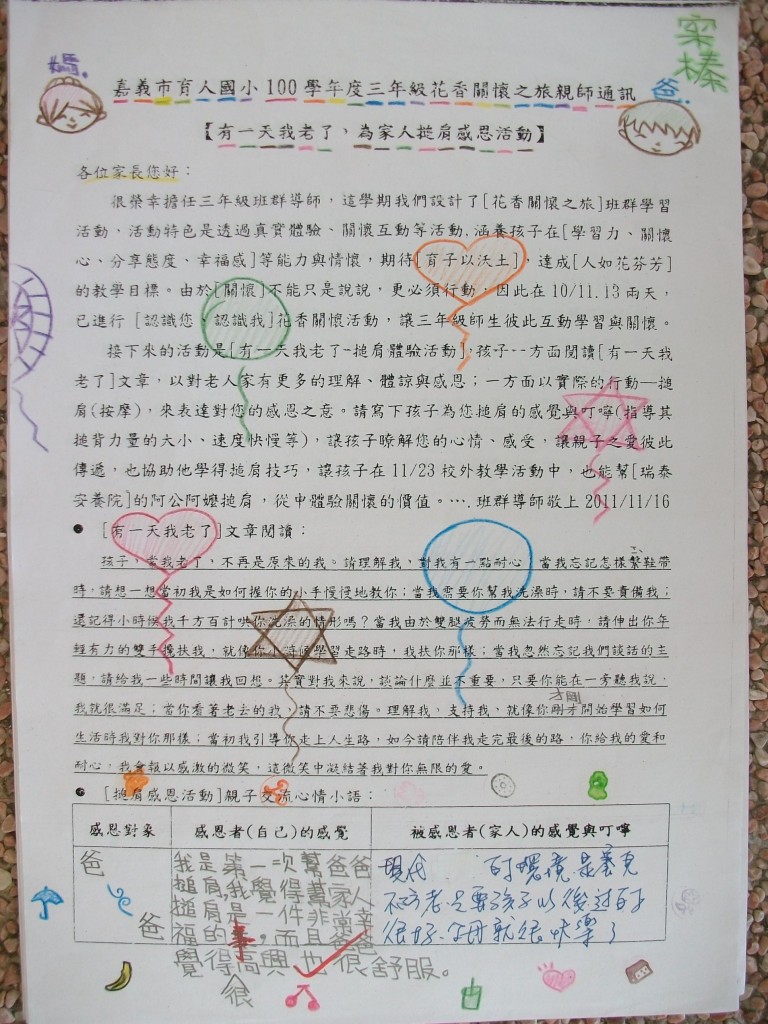 寀榛
媽.
爸.
嘉義市育人國小100學年度三年級花香關懷之旅親師通訊
【有一天我老了，為家人搥肩感恩活動】
各位家長您好：
很榮幸擔任三年級班群導師，這學期我們設計了[花香關懷之旅]班群學習
活動，活動特色是透過真實體驗、關懷互動等活動.涵養孩子在[學習力、關懷
心、分享態度、幸福感]等能力與情懷，期待[育子以沃土]，達成[人如花芬芳]
的教學目標。由於[關懷]不能只是說說，更必須行動，因此在10/11.13兩天，
已進行 [認識您、認識我]花香關懷活動，讓三年級師生彼此互動學習與關懷。
接下來的活動是[有一天我老了-搥肩體驗活動]，孩子--方面閱讀[有一天我
老了]文章，以對老人家有更多的理解、體諒與感恩；一方面以實際的行動—搥
肩(按摩)，來表達對您的感恩之意。請寫下孩子為您搥肩的感覺與叮嚀(指導其
搥背力量的大小、速度快慢等)，讓孩子瞭解您的心情、感受，讓親子之愛彼此
傳遞，也協助他學得搥肩技巧，讓孩子在11/23校外教學活動中，也能幫[瑞泰
安養院]的阿公阿嬤搥肩，從中體驗關懷的價值。….班群導師敬上 2011/11/16
● [有一天我老了]文章閱讀：
孩子，當我老了，不再是原來的我。請理解我，對我有一點耐心，當我忘記怎樣繫鞋帶
時，請想一想當初我是如何握你的小手慢慢地教你；當我需要你幫我洗澡時，請不要責備我；
還記得小時候我千方百計哄你洗澡的情形嗎？當我由於雙腿疲勞而無法行走時，請伸出你年
輕有力的雙手攙扶我，就像你小時候學習走路時，我扶你那樣；當我忽然忘記我們談話的主
題，請給我一些時間讓我回想。其實對我來說，談論什麼並不重要，只要你能在一旁聽我說，
我就很滿足；當你看著老去的我，請不要悲傷。理解我，支持我，就像你剛才開始學習如何
生活時我對你那樣；當初我引導你走上人生路，如今請陪伴我走完最後的路，你給我的愛和
耐心，我會報以感激的微笑，這微笑中凝結著我對你無限的愛。
● [搥肩感恩活動]親子交流心情小語：
感恩對象 感恩者(自己)的感覺 被感恩者(家人)的感覺與叮嚀
爸爸
我是第一次幫爸爸
搥肩，我覺得幫家人
搥肩是一件非常幸
福的事，而且爸爸
覺得很高興也很舒服。
現代 的環境是養兒
不方老.只要孩子以後过的
很好.父母就很快樂了